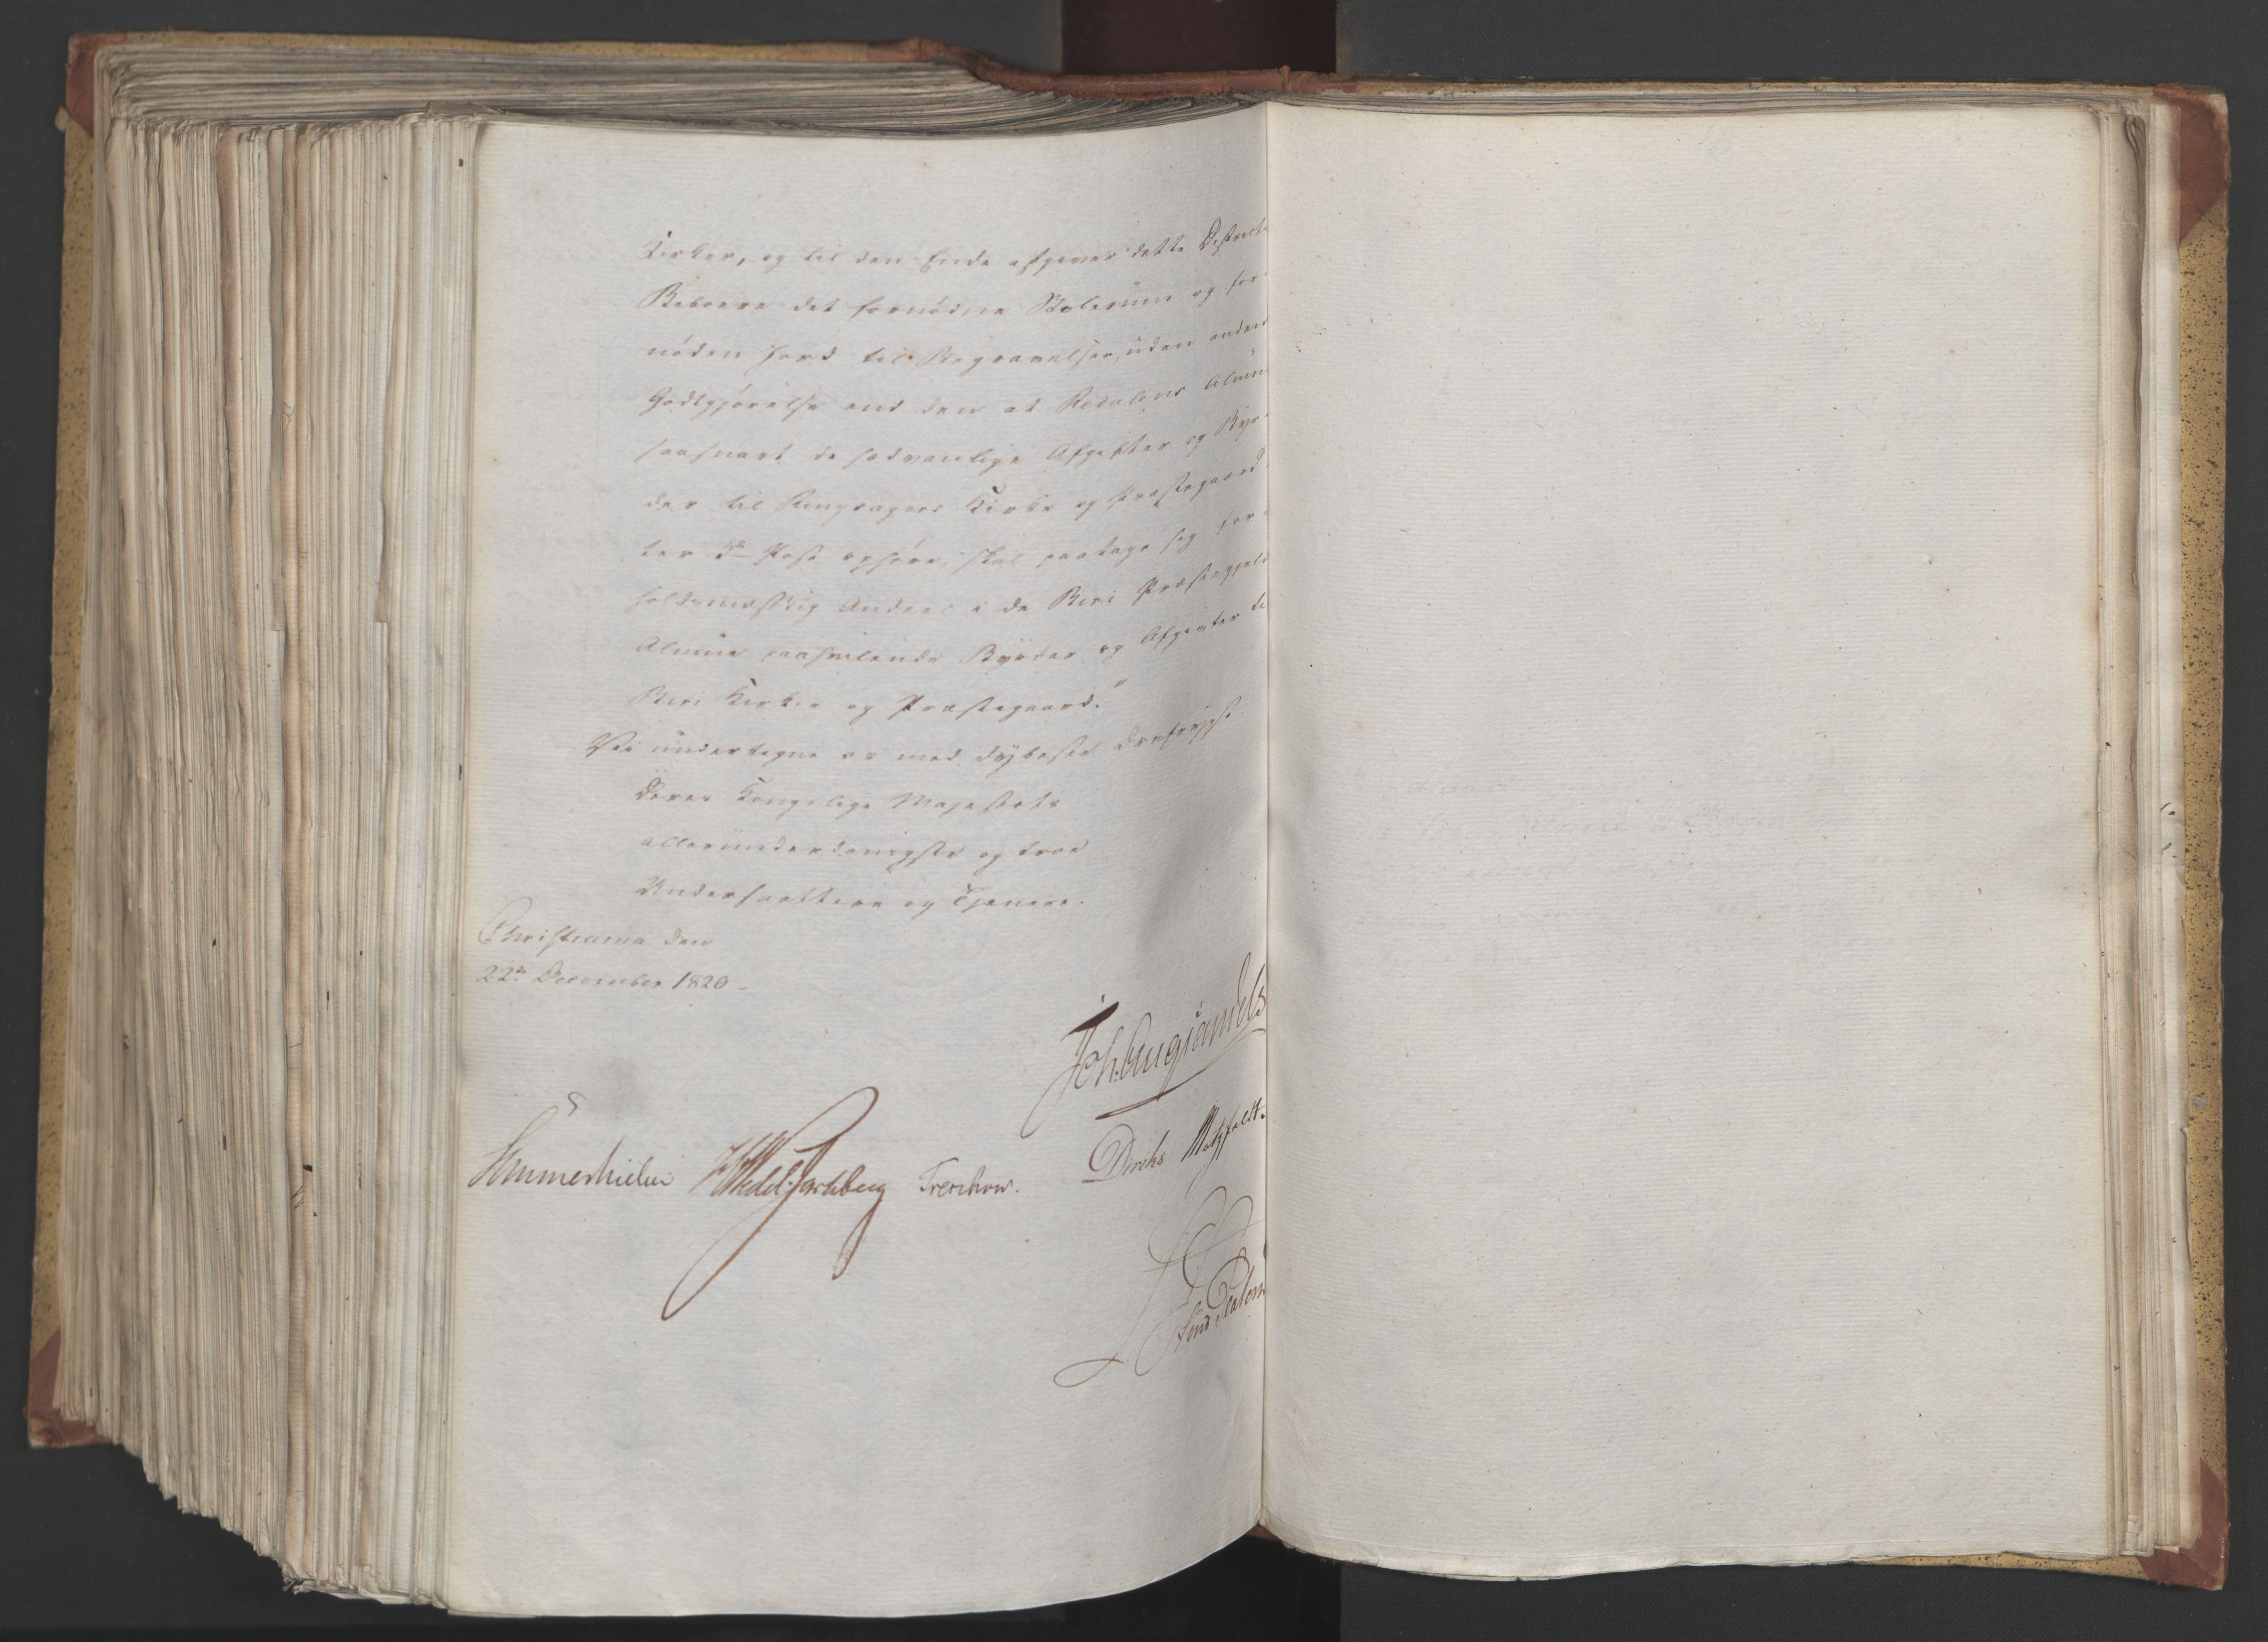 Kirker, og til den Ende afgiver dette Districts
Beboere det fornødne Stolerum og for-
nøden Jord til Begravelser, uden anden
Godtgjørelse end den at Redalens Almue
saasnart de sædvanlige Afgifter og Byr-
der til Ringsagers Kirke og Præstegaard
ter 3die Post ophøre, skal paatage sig for-
holdsmæssig Andeel i de Biri Præstegjelds
Almue paahvilende Byrder og Afgivter til
Biri Kirke og Præstegaard."
Vi undertegne os med dybeste Ærefrygt
Deres Kongelige Majestæts
allerunderdanigste og troe
Undersaattere og Tjenere.
Christiania den
22de December 1820 -
Joh. Collett
Sommerhielm HWedel Jarlsberg Treschow.
Diriks Motzfeldt.